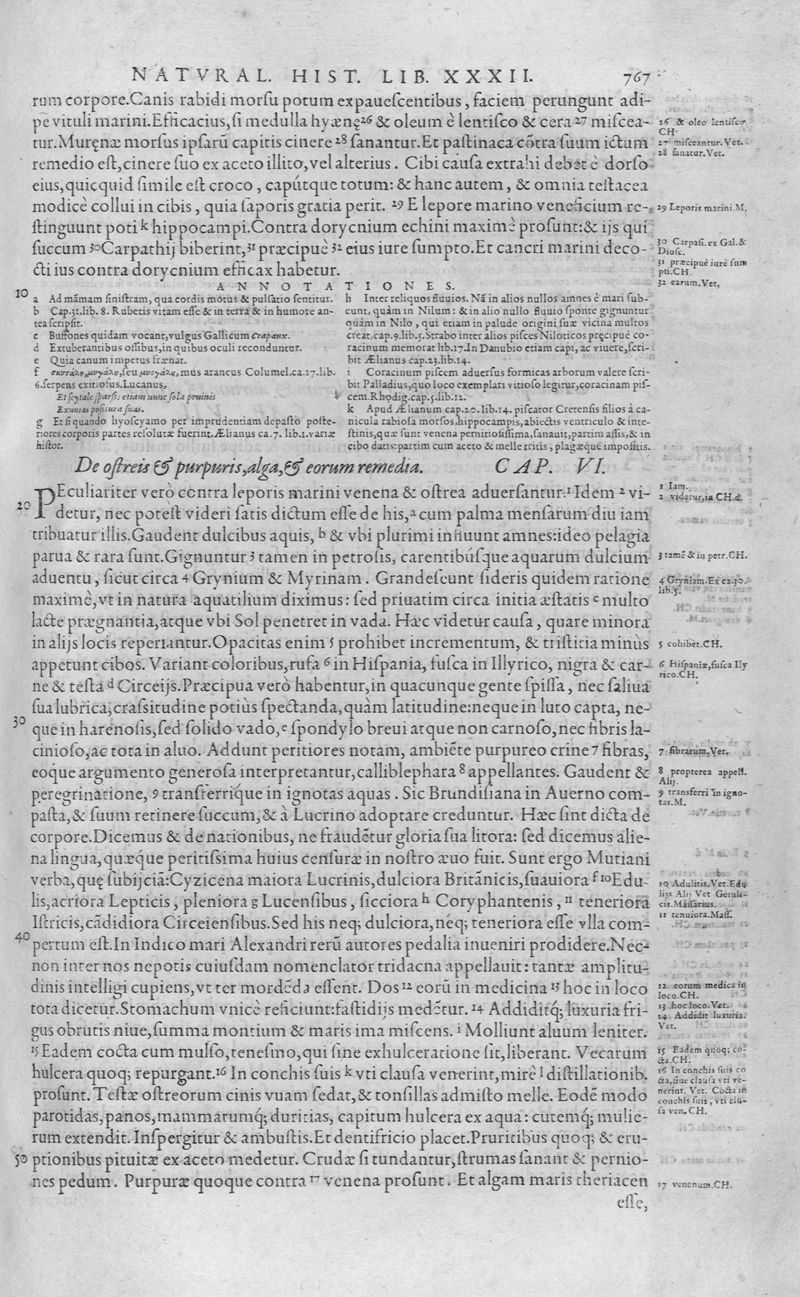 NATVRAL. HIST. LIB. XXXII. 767
rum corpore.Canis rabidi morſu potum expaueſcentibus, faciem perungunt adi-
pe vituli marini.Efficacius,ſi medulla hyænę²⁶ & oleum è lentiſco & cera ²⁷ miſcea-
tur.Muręnæ morſus ipſarū capitis cinere ²⁸ ſanantur.Et paſtinaca cōtra ſuum ictum
remedio eſt,cinere ſuo ex aceto illito,vel alterius. Cibi cauſa extrahi debet è dorſo
eius,quicquid ſimile eſt croco, capútque totum: & hanc autem, & omnia teſtacea
modicè collui in cibis, quia ſaporis gratia perit. ²⁹ E lepore marino veneficium re-
ſtinguunt poti ᵏ hippocampi.Contra dorycnium echini maximè proſunt:& ijs qui
ſuccum ³⁰Carpathij biberint,³¹ præcipuè ³² eius iure ſumpto.Et cancri marini deco-
cti ius contra dorycnium efficax habetur.
26 & oleo lentiſco.
CH.
27 miſceantur.Vet.
28 ſanatur.Vet.
29 Leporis marini.M.
30 Carpaſi.ex Gal.&
Dioſc.
31 præcipuè iure ſum
pti.CH.
32 earum.Vet,
ANNOTATIONES.
10
a Ad mámam ſiniſtram, qua cordis motus & pulſatio ſentitur.
b Cap.31.lib. 8. Rubetis vitam eſſe & in terra & in humore an-
tea ſcripſit.
c Buffones quidam vocant,vulgus Gallicum Crapaux.
d Extuberantibus oſſibus,in quibus oculi reconduntur.
e Quia canum impetus frænat.
mus araneus Columel.ca.17.lib.
6.ſerpens exitioſus.Lucanus,
Et ſcytale ſparſis etiam nunc ſola pruinis
Exuuias poſitura ſuas.
g Et ſi quando hyoſcyamo per imprudentiam depaſto poſte-
riores corporis partes reſolutæ fuerint.Ælianus ca.7. lib.1.variæ
hiſtor.
h Inter reliquos fluuios. Nā in alios nullos amnes è mari ſub-
eunt, quàm in Nilum: & in alio nullo fluuio ſponte gignuntur
quàm in Nilo, qui etiam in palude origini ſuæ vicina multos
creat.cap.9.lib.5.Strabo inter alios piſces Niloticos pręcipuè co-
racinum memorat lib.17.In Danubio etiam capi, ac viuere,ſcri-
bit Ælianus cap.23.lib.14.
i Coracinum piſcem aduerſus formicas arborum valere ſcri-
bit Palladius,quo loco exemplari vitioſo legitur,coracinam piſ-
cem.Rhodig.cap.5.lib.11.
k Apud Ælianum cap.20.lib.14. piſcator Cretenſis filios à ca-
nicula rabioſa morſos,hippocampis,abiectis ventriculo & inte-
ſtinis,quæ ſunt venena pernitioſiſſima,ſanauit,partim aſſis,& in
cibo datis:partim cum aceto & melle tritis, plagæque impoſitis.
De oſtreis & purpuris,alga,& eorum remedia. CAP. VI.
PEculiariter verò contra leporis marini venena & oſtrea aduerſantur.¹ Idem ² vi-
20 detur, nec poteſt videri ſatis dictum eſſe de his,ᵃ cum palma menſarum diu iam
tribuatur illis.Gaudent dulcibus aquis, ᵇ & vbi plurimi influunt amnes:ideo pelagia
parua & rara ſunt.Gignuntur ³ tamen in petroſis, carentibúſque aquarum dulcium
aduentu, ſicut circa ⁴ Grynium & Myrinam. Grandeſcunt ſideris quidem ratione
maximè,vt in natura aquatilium diximus: ſed priuatim circa initia æſtatis ᶜ multo
lacte prægnantia,atque vbi Sol penetret in vada. Hæc videtur cauſa, quare minora
in alijs locis reperiantur.Opacitas enim ⁵ prohibet incrementum, & triſtitia minùs
appetunt cibos. Variant coloribus,rufa ⁶ in Hiſpania, fuſca in Illyrico, nigra & car-
ne & teſta ᵈ Circeijs.Præcipua verò habentur,in quacunque gente ſpiſſa, nec ſaliua
ſua lubrica,craſsitudine potiùs ſpectanda,quàm latitudine:neque in luto capta, ne-
30 que in harenoſis,ſed ſolido vado,ᵉ ſpondylo breui atque non carnoſo,nec fibris la-
cinioſo,ac tota in aluo. Addunt peritiores notam, ambiēte purpureo crine ⁷ fibras,
eoque argumento generoſa interpretantur,calliblephara ⁸ appellantes. Gaudent &
peregrinatione, ⁹ transferríque in ignotas aquas. Sic Brundiſiana in Auerno com-
paſta,& ſuum retinere ſuccum,& à Lucrino adoptare creduntur. Hæc ſint dicta de
corpore.Dicemus & de nationibus, ne fraudētur gloria ſua litora: ſed dicemus alie-
na lingua,quæque peritiſsima huius cenſuræ in noſtro æuo fuit. Sunt ergo Mutiani
verba,quę ſubijciā:Cyzicena maiora Lucrinis,dulciora Britānicis,ſuauiora ᶠ ¹⁰Edu-
lis,acriora Lepticis, pleniora g Lucenſibus, ſicciora ʰ Coryphantenis, ¹¹ teneriora
Iſtricis,cādidiora Circeienſibus.Sed his neq; dulciora,néq; teneriora eſſe vlla com-
40 pertum eſt.In Indico mari Alexandri rerū autores pedalia inueniri prodidere.Nec-
non inter nos nepotis cuiuſdam nomenclator tridacna appellauit: tantæ amplitu-
dinis intelligi cupiens,vt ter mordēda eſſent. Dos ¹² eorū in medicina ¹³ hoc in loco
tota dicetur.Stomachum vnicè reficiunt:faſtidijs medētur. ¹⁴ Addiditq; luxuria fri-
gus obrutis niue,ſumma montium & maris ima miſcens. ⁱ Molliunt aluum leniter.
¹⁵ Eadem cocta cum mulſo,teneſmo,qui ſine exhulceratione ſit,liberant. Veſicarum
hulcera quoq; repurgant.¹⁶ In conchis ſuis ᵏ vti clauſa venerint,mirè ˡ diſtillationib.
proſunt. Teſtæ oſtreorum cinis vuam ſedat,& tonſillas admiſto melle. Eodē modo
parotidas,panos,mammarumq; duritias, capitum hulcera ex aqua: cutemq; mulie-
rum extendit. Inſpergitur & ambuſtis.Et dentifricio placet.Pruritibus quoq; & eru-
50 ptionibus pituitæ ex aceto medetur. Crudæ ſi tundantur,ſtrumas ſanant & pernio-
nes pedum. Purpuræ quoque contra ¹⁷ venena proſunt. Et algam maris theriacen
eſſe,
1 Iam.
2 videtur,in CH.d.
3 tamē & in petr.CH.
4 Gryniam.Ex ca.30.
lib.5.
5 cohibet.CH.
6 Hiſpaniæ,fuſca Illy
rico.CH.
7 fibrarum.Vet.
8 propterea appell.
Alij.
9 transferri in igno-
tas.M.
10 Adulitis.Vet Edu
lijs Alij Vet Getuli-
cis.Maſſarius.
11 tenuiora.Maſſ.
12 eorum medica in
loco.CH.
13 hoc loco.Vet.
14 Addidit luxuria.
Vet.
15 Eadem quoq; co-
cta.CH.
16 In conchis ſuis co
cta,ſiue clauſa vti ve-
nerint. Vet. Cocta in
conchis ſuis, vti clu-
ſa ven.CH.
17 venenum.CH.